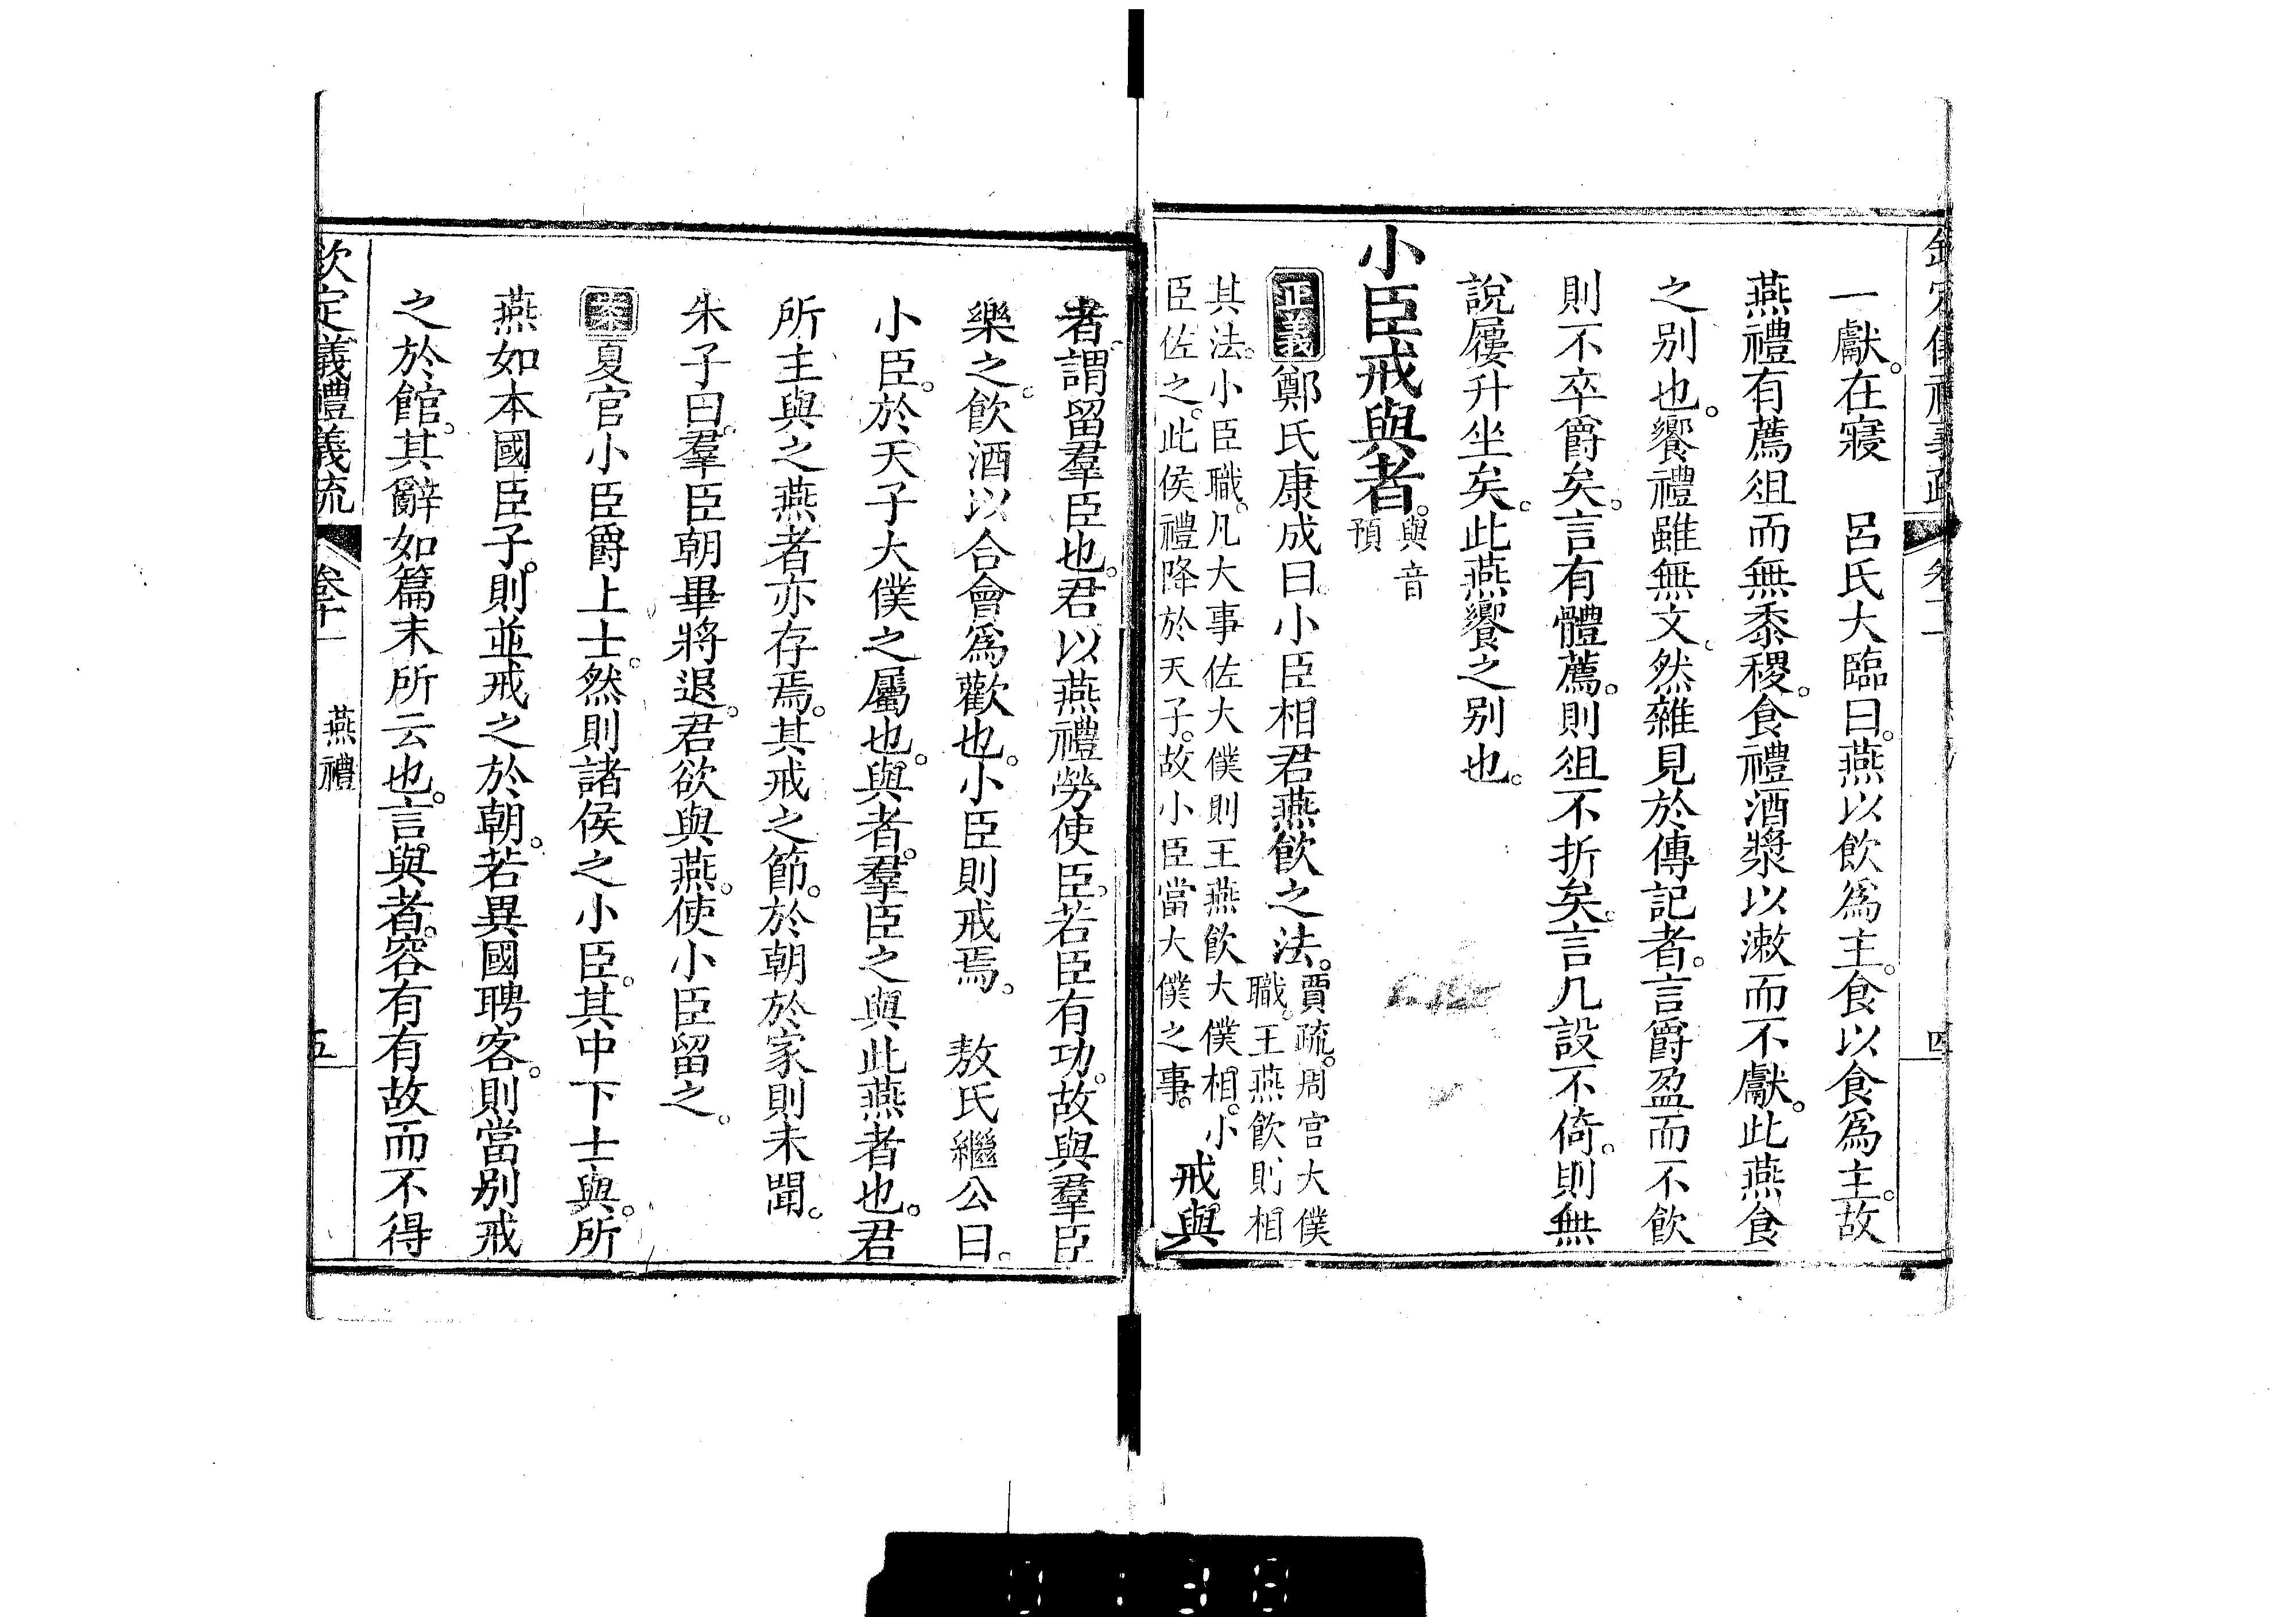 欽定儀禮義疏 卷十一 四
一獻。在寢 呂氏大臨曰。燕以飲爲主。食以食爲主。故
燕禮有薦俎而無黍稷。食禮酒漿以漱而不獻。此燕食
之别也。饗禮雖無文。然雜見於傳記者。言爵盈而不飲
則不卒爵矣。言有體薦。則俎不折矣。言几設不倚。則無
說屨升坐矣。此燕饗之别也。
小臣戒與者。與音
預
正義鄭氏康成曰。小臣相君燕飲之法。賈疏。周官大僕
職。王燕飲則相
其法。小臣職。凡大事佐大僕則王燕飲大僕相。小
臣佐之。此侯禮降於天子。故小臣當大僕之事。戒與
者。謂留羣臣也。君以燕禮勞使臣。若臣有功。故與羣臣
樂之。飲酒以合會爲歡也。小臣則戒焉。 敖氏繼公曰。
小臣。於天子大僕之屬也。與者。羣臣之與此燕者也。君
所主與之燕者亦存焉。其戒之節。於朝於家則未聞。
朱子曰。羣臣朝畢將退。君欲與燕。使小臣留之。
案夏官小臣爵上士。然則諸侯之小臣。其中下士與。所
燕如本國臣子。則並戒之於朝。若異國聘客。則當别戒
之於館。其辭如篇末所云也。言與者。容有有故而不得
欽定義禮義疏 卷十一 燕禮 五
0138